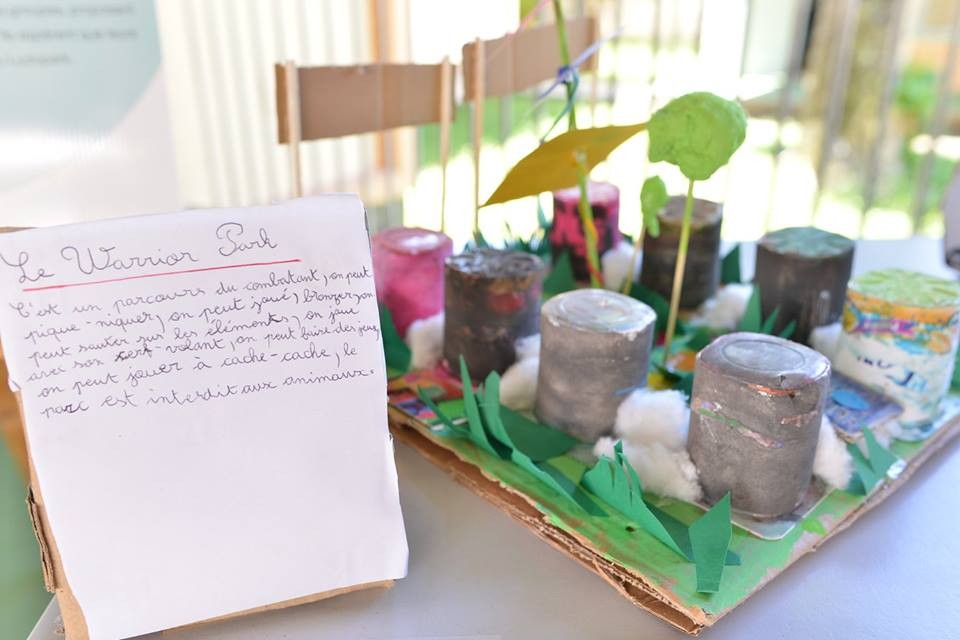 Le Warrior Park
C'est un parcours du combatant, on peut
pique-niquer, on peut joué, bronzer, on
peut sauter sur les éléments, on joue
avec son cerf-volant, on peut faire des jeux,
on peut jouer à cache-cache, le
parc est interdit aux animaux.